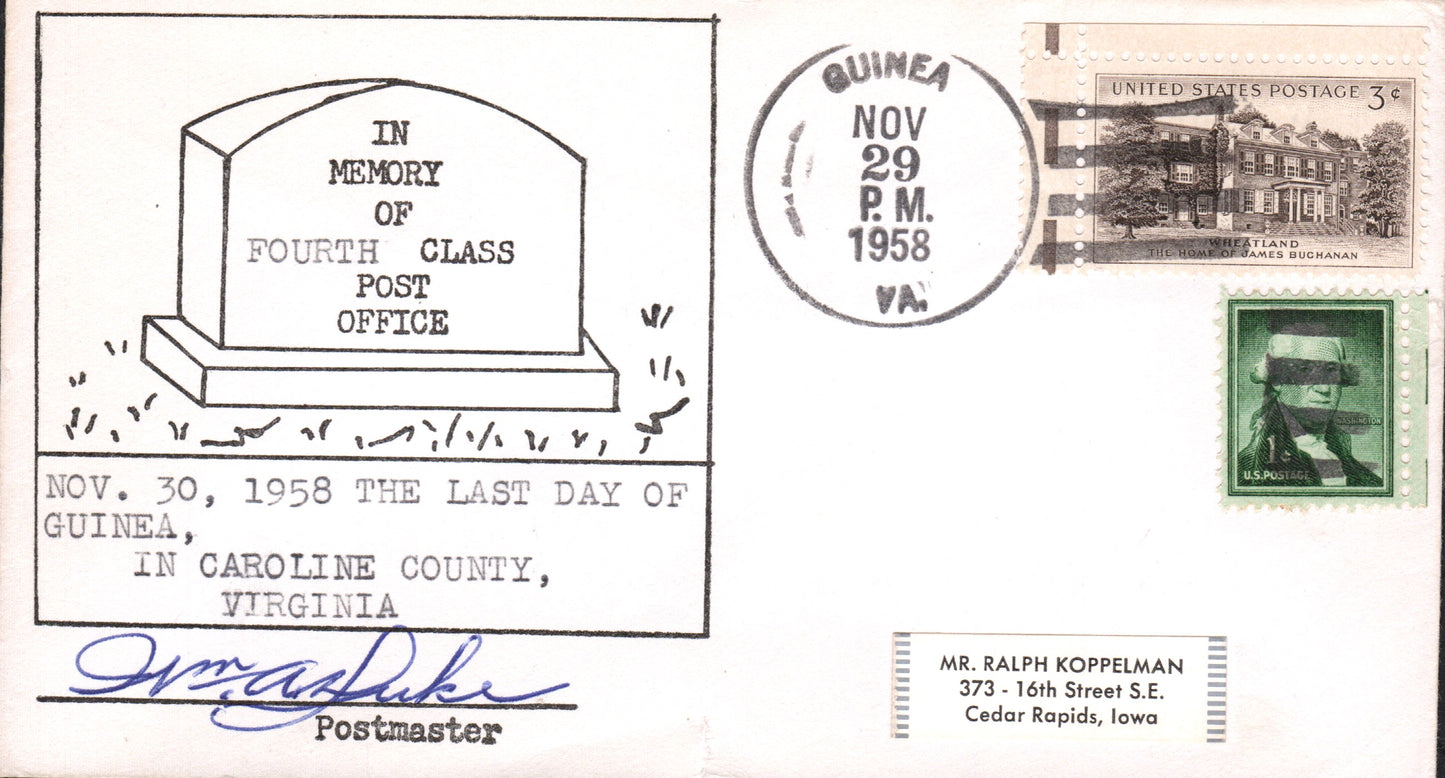 IN
MEMORY
OF
FOURTH CLASS
POST
OFFICE
NOV. 30, 1958 THE LAST DAY OF
GUINEA,
IN CAROLINE COUNTY,
VIRGINIA
Wm. A. Duke
Postmaster
GUINEA
NOV
29
P.M.
1958
VA.
UNITED STATES POSTAGE 3¢
WHEATLAND
THE HOME OF JAMES BUCHANAN
WASHINGTON
1¢
U.S. POSTAGE
MR. RALPH KOPPELMAN
373 - 16th Street S.E.
Cedar Rapids, Iowa